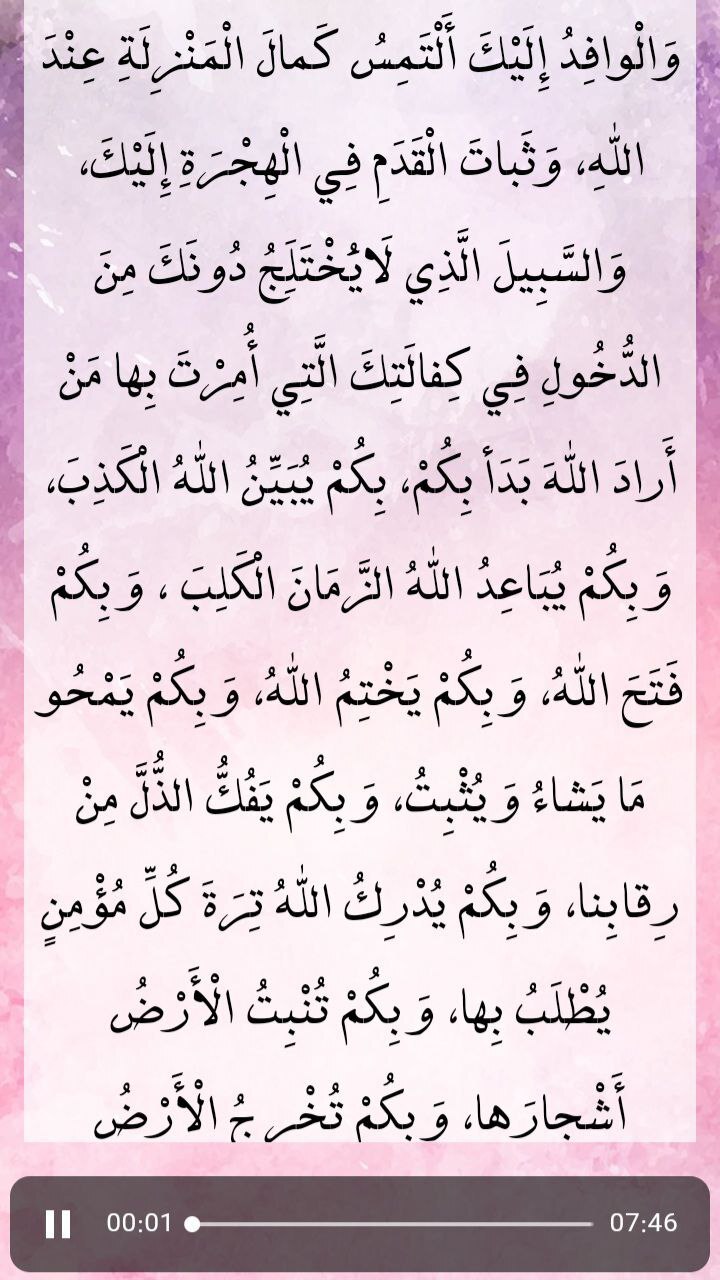 وَالْوافِدُ إِلَيْكَ أَلْتَمِسُ كَمالَ الْمَنْزِلَةِ عِنْدَ
اللهِ، وَثَباتَ الْقَدَمِ فِي الْهِجْرَةِ إِلَيْكَ،
وَالسَّبِيلَ الَّذِي لَايُخْتَلَجُ دُونَكَ مِنَ
الدُّخُولِ فِي كِفالَتِكَ الَّتِي أُمِرْتَ بِها مَنْ
أَرادَ اللهَ بَدَأ بِكُمْ، بِكُمْ يُبَيِّنُ اللهُ الْكَذِبَ،
وَ بِكُمْ يُبَاعِدُ اللهُ الزَّمَانَ الْكَلِبَ ، وَ بِكُمْ
فَتَحَ اللهُ، وَ بِكُمْ يَخْتِمُ اللهُ، وَ بِكُمْ يَمْحُو
مَا يَشاءُ وَ يُثْبِتُ، وَ بِكُمْ يَفُكُّ الذُّلَّ مِنْ
رِقابِنا، وَ بِكُمْ يُدْرِكُ اللهُ تِرَةَ كُلِّ مُؤْمِنٍ
يُطْلَبُ بِها، وَ بِكُمْ تُنْبِتُ الْأَرْضُ
أَشْجارَها، وَ بِكُمْ تُخْرِجُ الْأَرْضُ
00:01 07:46